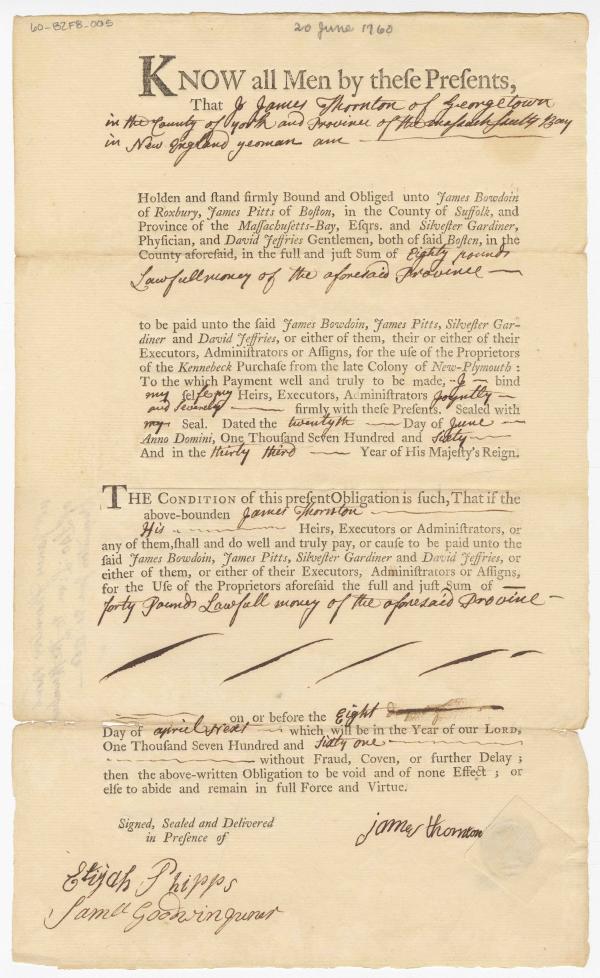 60-BZF8-005
20 June 1760
KNOW all Men by theſe Preſents,
That I James Thornton of Georgetown
in the County of york and Province of the massachusetts Bay
in New England yeoman am
Holden and ſtand firmly Bound and Obliged unto James Bowdoin
of Roxbury, James Pitts of Boſton, in the County of Suffolk, and
Province of the Maſſachuſetts-Bay, Eſqrs. and Silveſter Gardiner,
Phyſician, and David Jeffries Gentlemen, both of ſaid Boſton, in the
County aforeſaid, in the full and juſt Sum of Eighty pounds
Lawfull money of the aforesaid Province
to be paid unto the ſaid James Bowdoin, James Pitts, Silveſter Gar-
diner and David Jeffries, or either of them, their or either of their
Executors, Adminiſtrators or Aſſigns, for the uſe of the Proprietors
of the Kennebeck Purchaſe from the late Colony of New-Plymouth :
To the which Payment well and truly to be made, I bind
my ſelf my Heirs, Executors, Adminiſtrators Joyntly
and Severely firmly with theſe Preſents. Sealed with
my Seal. Dated the twentyth Day of June
Anno Domini, One Thouſand Seven Hundred and Sixty
And in the thirty third Year of His Majeſty's Reign.
THE CONDITION of this preſent Obligation is ſuch, That if the
above-bounden James Thornton
His Heirs, Executors or Adminiſtrators, or
any of them, ſhall and do well and truly pay, or cauſe to be paid unto the
ſaid James Bowdoin, James Pitts, Silveſter Gardiner and David Jeffries, or
either of them, or either of their Executors, Adminiſtrators or Aſſigns,
for the Uſe of the Proprietors aforeſaid the full and juſt Sum of
forty Pounds Lawfull money of the aforesaid Provine
on or before the Eight
Day of april Next which will be in the Year of our LORD,
One Thouſand Seven Hundred and Sixty one
without Fraud, Coven, or further Delay ;
then the above-written Obligation to be void and of none Effect ; or
elſe to abide and remain in full Force and Virtue.
Signed, Sealed and Delivered
in Preſence of
james thornton
Elijah Phipps
Samll Goodwin juner